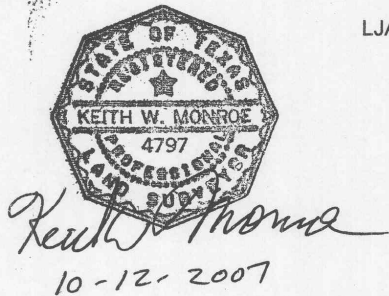 LJA
STATE OF TEXAS
REGISTERED
KEITH W. MONROE
4797
PROFESSIONAL
LAND SURVEYOR
Keith W Monroe
10-12-2007